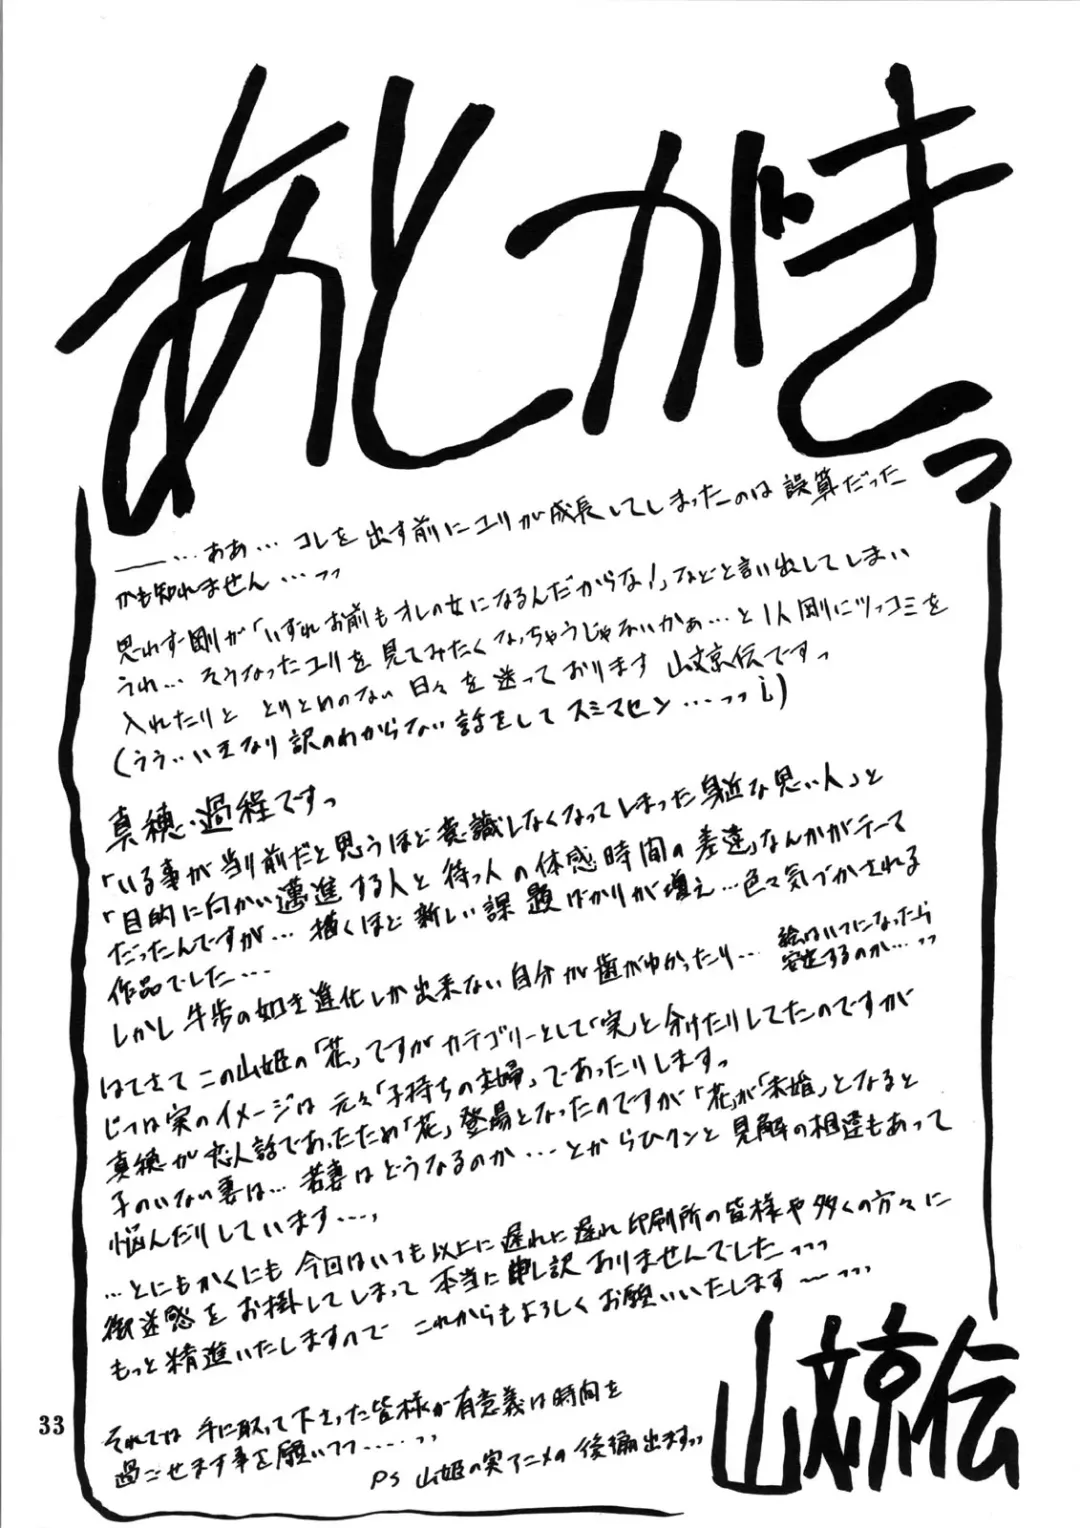 あとがきっ
――…ああ… コレを出す前にユリが成長してしまったのは誤算だった
かも知れません…っっ
思わず剛が「いずれお前もオレの女になるんだからな!」などと言い出してしまい
うれ… そうなったユリを見てみたくなっちゃうじゃないかぁ…と1人剛にツッコミを
入れたりと とりとめのない日々を送っております 山文京伝ですっ
(うう…いきなり訳のわからない話をしてスミマセン…っっ)
真穂・過程ですっ
「いる事が当り前だと思うほど意識しなくなってしまった身近な思い人」と
「目的に向かい邁進する人と待つ人の体感時間の差違」なんかがテーマ
だったんですが… 描くほど新しい課題ばかりが増え…色々気づかされる
作品でした…
しかし牛歩の如き進化しか出来ない自分が歯がゆかったり…
絵はいつになったら
安定するのか…っっ
はてさてこの山姫の「花」ですがカテゴリーとして「実」と分けたりしてたのですが
じつは実のイメージは元々「子持ちの主婦」であったりしますっ
真穂が恋人話であったため「花」登場となったのですが「花」が「未婚」となると
子のいない妻は… 若妻はどうなるのか…とからひクンと見解の相違もあって
悩んだりしています…、
…とにもかくにも今回はいつも以上に遅れに遅れ印刷所の皆様や多くの方々に
御迷惑をお掛してしまって本当に申し訳ありませんでした…っっ
もっと精進いたしますので これからもよろしくお願いいたします〜…っっ
それでは 手に取って下さった皆様が有意義な時間を
過ごせます事を願いつつ……っっ
PS 山姫の実アニメの後編出ますっっ
山文京伝
33